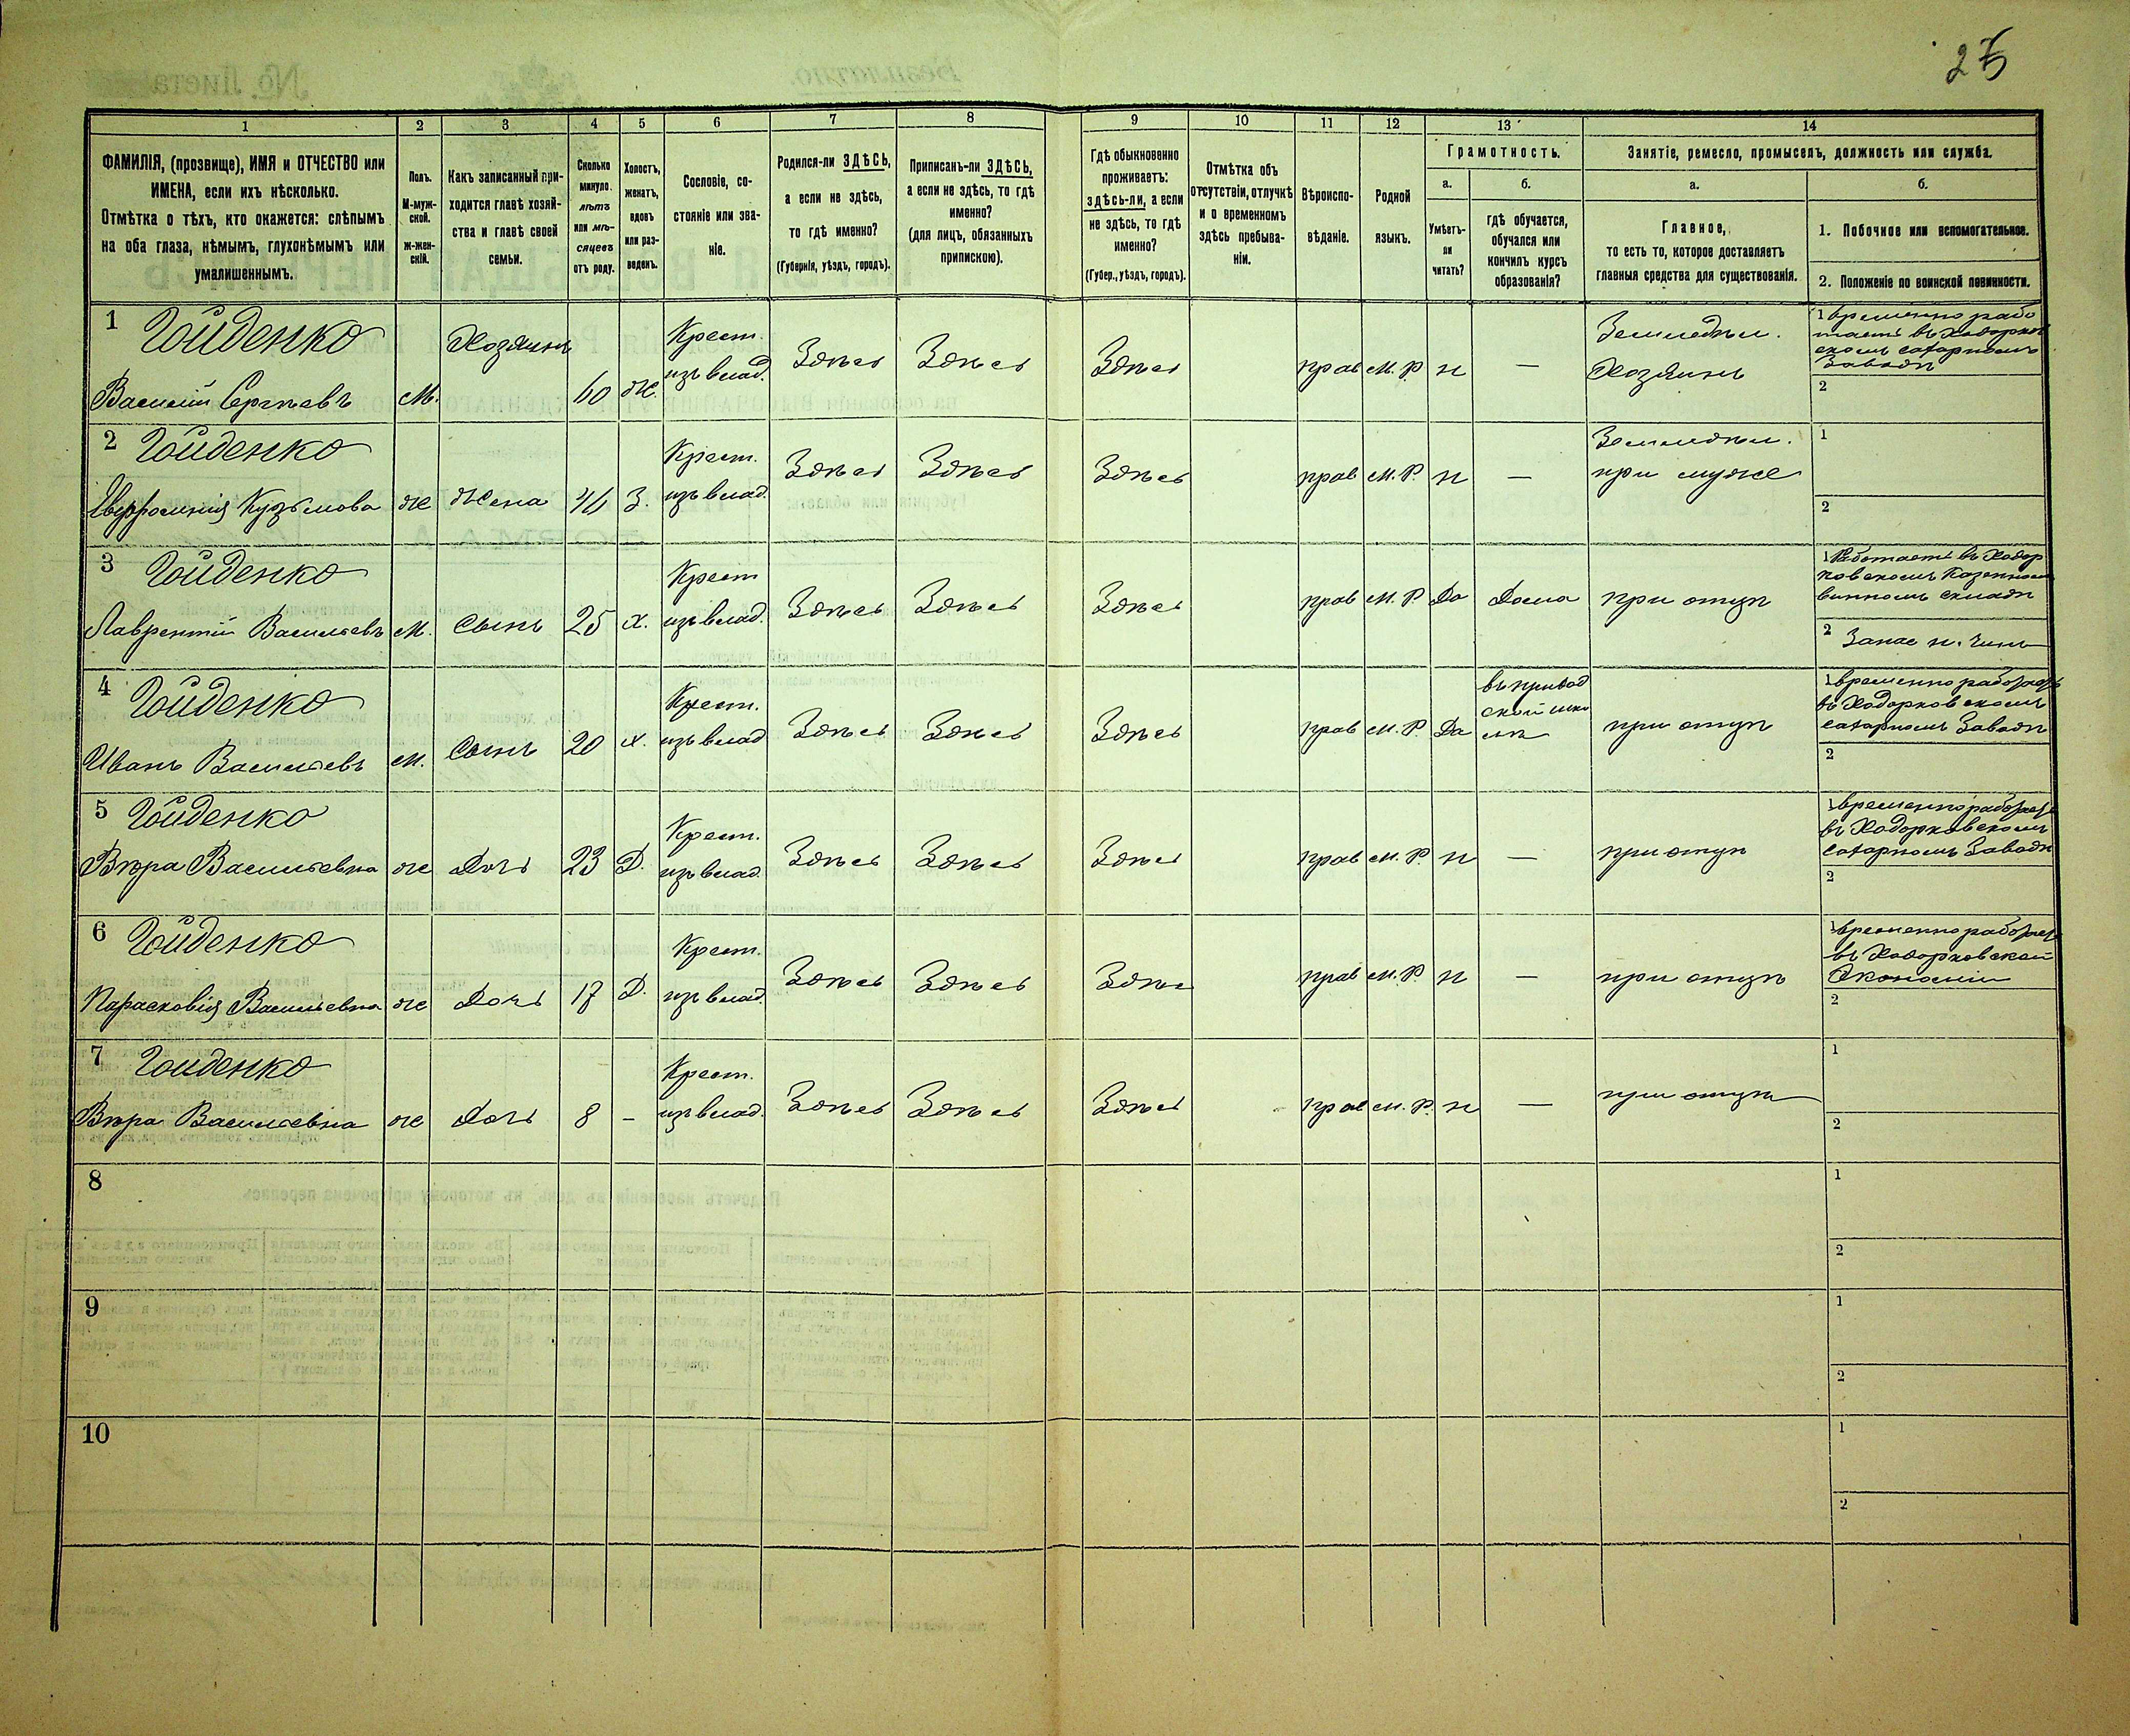 25
1 2 3 4 5 6 7 8 9 10 11 12 13 14
ФАМИЛІЯ, (прозвище), ИМЯ и ОТЧЕСТВО или
ИМЕНА, если ихъ нѣсколько.
Отмѣтка о тѣхъ, кто окажется: слѣпымъ
на оба глаза, нѣмымъ, глухонѣмымъ или
умалишеннымъ.
Полъ.
М-муж-
ской.
ж-жен-
скій.
Какъ записанный при-
ходится главѣ хозяй-
ства и главѣ своей
семьи.
Сколько
минуло.
лѣтъ
или мѣ-
сяцевъ
отъ роду.
Холостъ,
женатъ,
вдовъ
или раз-
веденъ.
Сословіе, со-
стояніе или зва-
ніе.
Родился-ли ЗДѢСЬ,
а если не здѣсь,
то гдѣ именно?
(Губернія, уѣздъ, городъ).
Приписанъ-ли ЗДѢСЬ,
а если не здѣсь, то гдѣ
именно?
(для лицъ, обязанныхъ
припискою).
Гдѣ обыкновенно
проживаетъ:
здѣсь-ли, а если
не здѣсь, то гдѣ
именно?
(Губер., уѣздъ, городъ).
Отмѣтка объ
отсутствіи, отлучкѣ
и о временномъ
здѣсь пребыва-
ніи.
Вѣроиспо-
вѣданіе.
Родной
языкъ.
Грамотность.
а.
Умѣетъ-
ли
читать?
б.
гдѣ обучается,
обучался или
кончилъ курсъ
образованія?
Занятіе, ремесло, промыселъ, должность или служба.
а.
Главное,
то есть то, которое доставляетъ
главныя средства для существованія.
б.
1. Побочное или вспомогательное.
2. Положеніе по воинской повинности.
1 Гойденко
Василій Сергѣевъ
М.
Хозяинъ
60
Ж.
Крест.
изъ влад.
Здѣсь
Здѣсь
Здѣсь
прав
М. Р.
н
—
Земледѣл.
Хозяинъ
1 временно рабо
таетъ въ Ходорков
скомъ сахарномъ
Заводѣ
2
2 Гойденко
Евфросинія Кузьмова
Ж
Жена
З.
Крест.
изъ влад.
Здѣсь
Здѣсь
Здѣсь
прав
М. Р.
н
—
Земледѣл.
при муже
1
2
3 Гойденко
Лаврентій Васильевъ
М.
Сынъ
25
Х.
Крест
изъ влад.
Здѣсь
Здѣсь
Здѣсь
прав
М. Р.
Да
Дома
при отцѣ
1 Работаетъ въ Ходор
ковскомъ Казенномъ
винномъ складѣ
2 Запас н. Чинъ
4 Гойденко
Иванъ Васильевъ
М.
Сынъ
20
Х.
Крест.
изъ влад
Здѣсь
Здѣсь
Здѣсь
прав
М. Р.
Да
при отцѣ
1 временно работаетъ
въ Ходорковскомъ
сахарномъ Заводѣ
2
5 Гойденко
Вѣра Васильевна
Ж
Дочь
23
Д.
Крест.
изъ влад.
Здѣсь
Здѣсь
Здѣсь
прав
М. Р.
н
—
при отцѣ
1 временно работаетъ
въ Ходорковскомъ
Сахарномъ Заводѣ
2
6 Гойденко
Парасковія Васильевна
Ж
Дочь
17
Д.
Крест.
изъ влад.
Здѣсь
Здѣсь
Здѣсь
прав
М. Р.
н
—
при отцѣ
1 временно работаетъ
въ Ходорковской
Экономіи
2
7 Гоиденко
Вѣра Васильевна
Ж
Дочь
8
–
Крест.
изъ влад.
Здѣсь
Здѣсь
Здѣсь
прав
М. Р.
н
—
при отцѣ
1
2
8
1
2
9
1
2
10
1
2